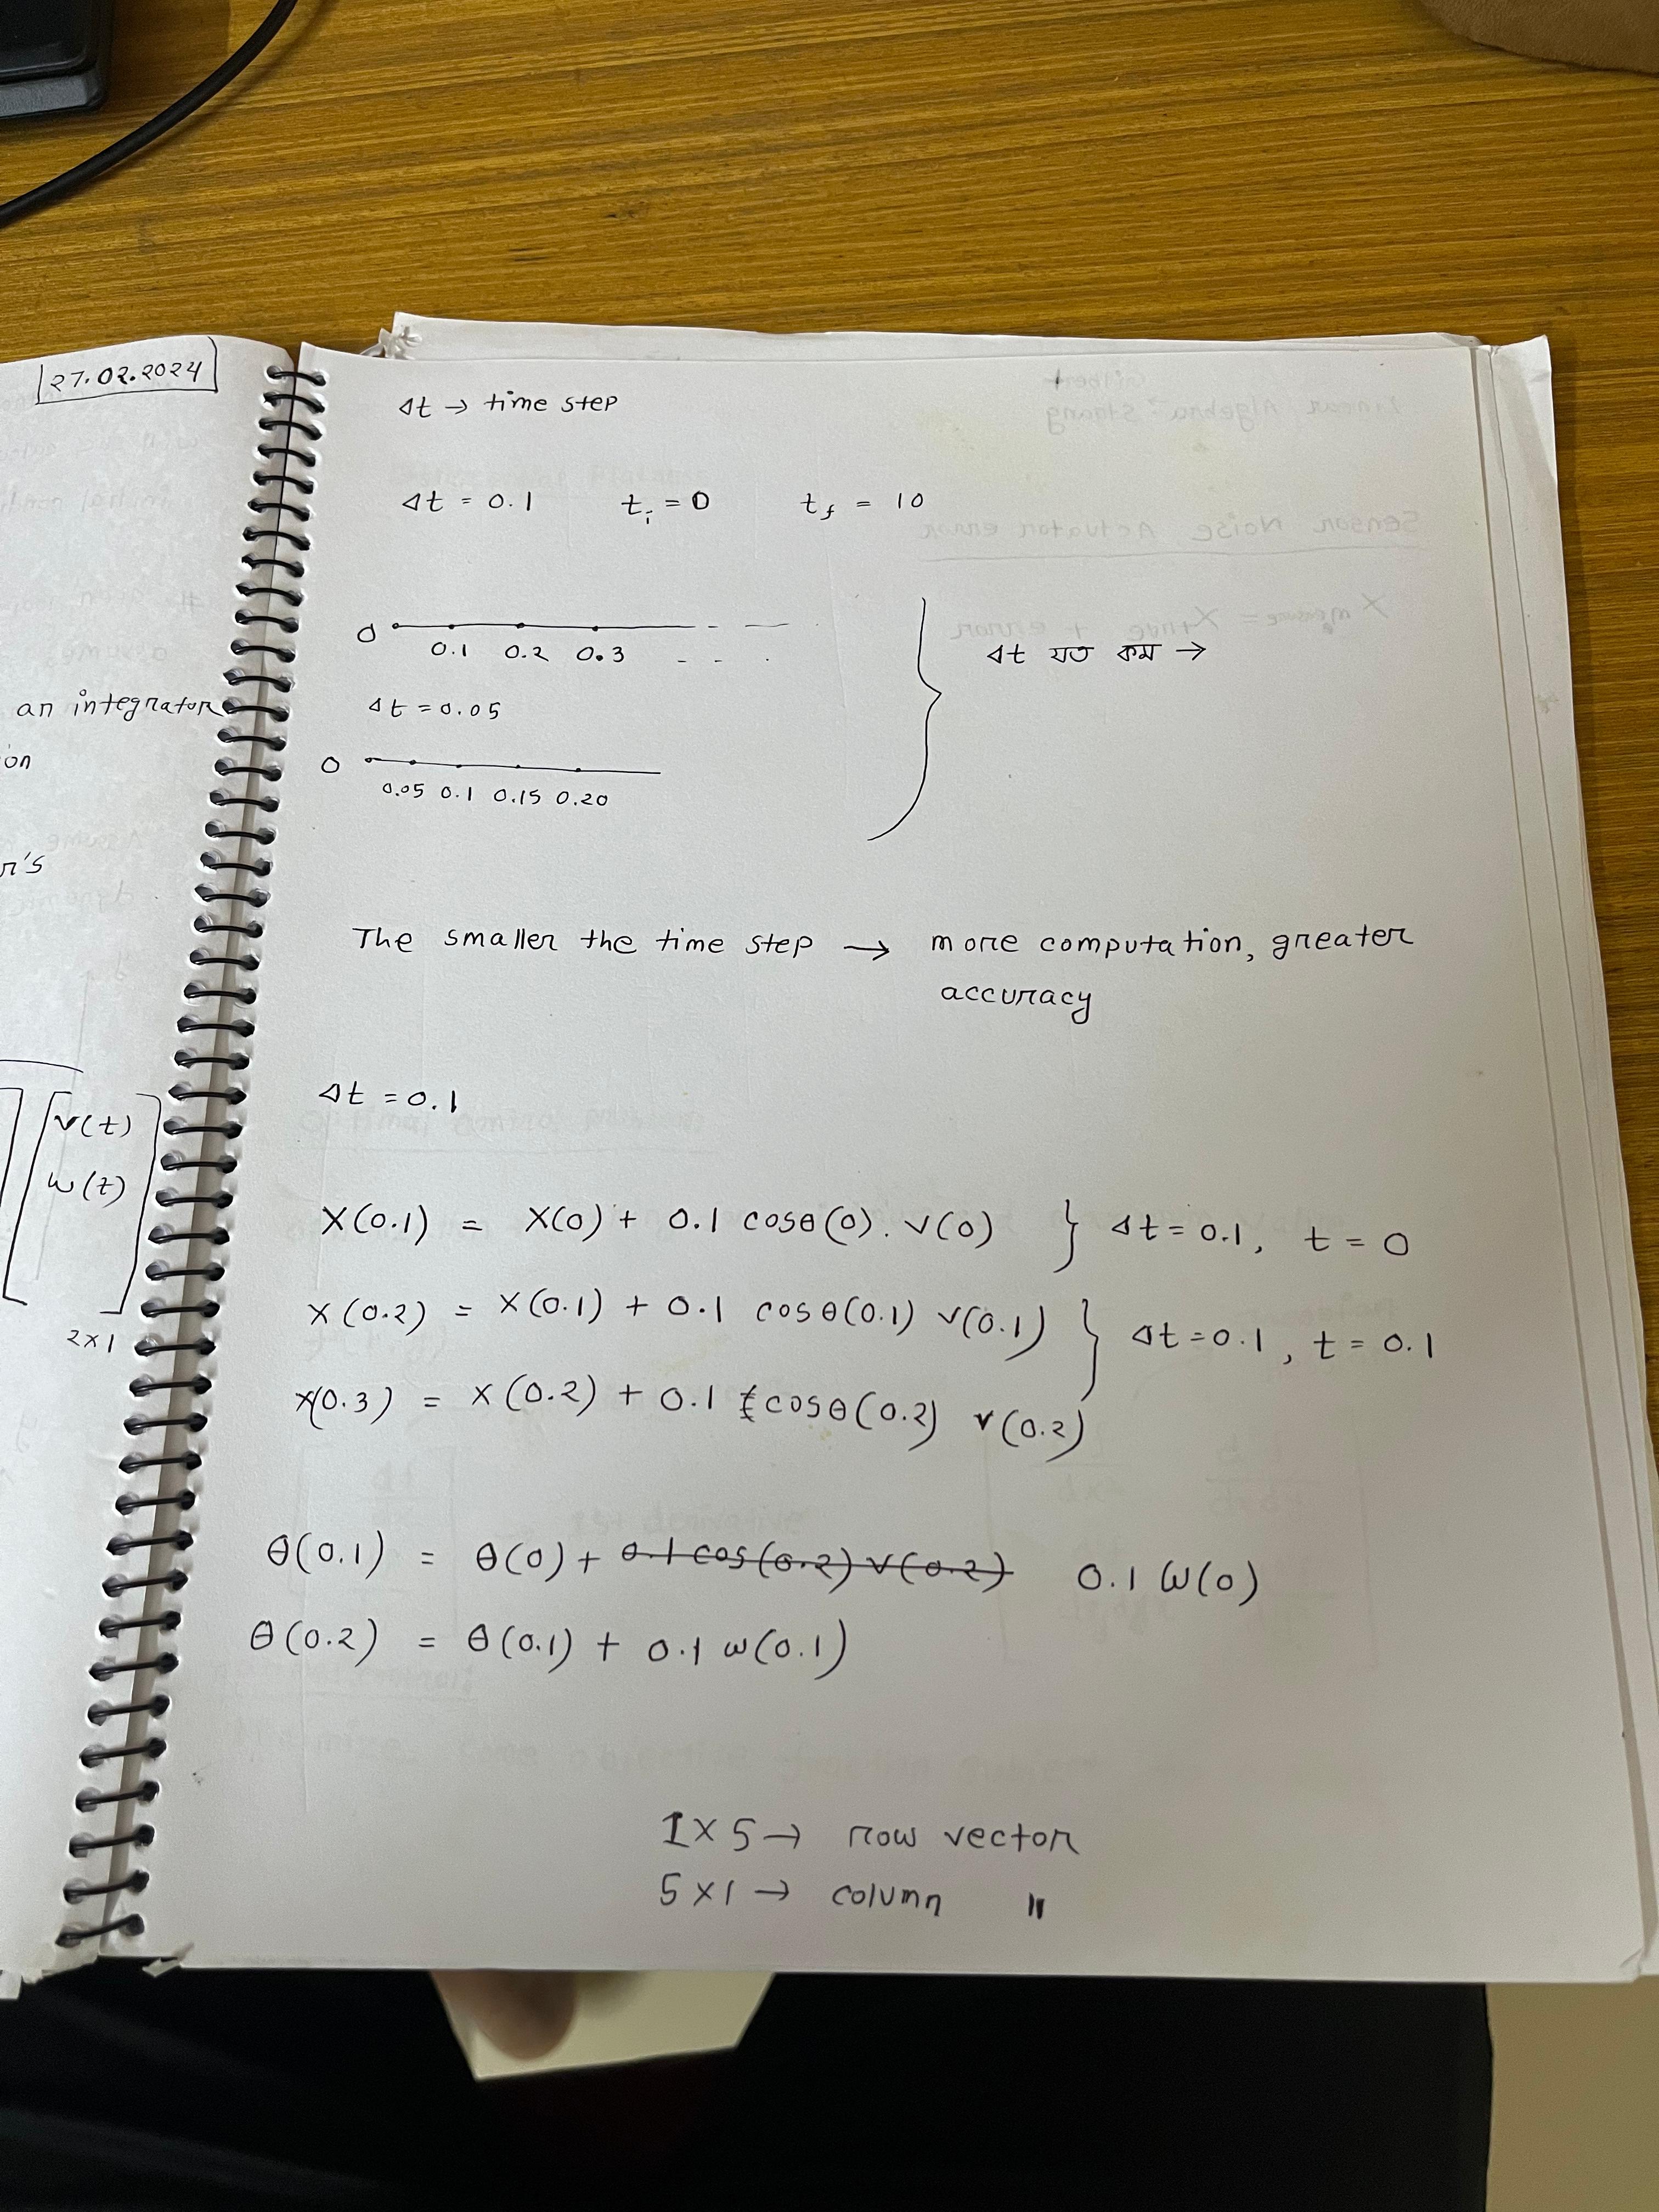 27.02.2024
an integrator
on
r's
v(t)
ω(t)
2×1
Δt → time step
Δt = 0.1 t_i = 0 t_f = 10
0 0.1 0.2 0.3
Δt যত কম →
Δt = 0.05
0 0.05 0.1 0.15 0.20
The smaller the time step → more computation, greater
accuracy
Δt = 0.1
X(0.1) = X(0) + 0.1 cosθ(0). v(0) } Δt = 0.1, t = 0
X(0.2) = X(0.1) + 0.1 cosθ(0.1) v(0.1) } Δt = 0.1, t = 0.1
X(0.3) = X(0.2) + 0.1 cosθ(0.2) v(0.2)
θ(0.1) = θ(0) + 0.1 cos(0.2) v(0.2) 0.1 ω(0)
θ(0.2) = θ(0.1) + 0.1 ω(0.1)
1×5 → row vector
5×1 → column "